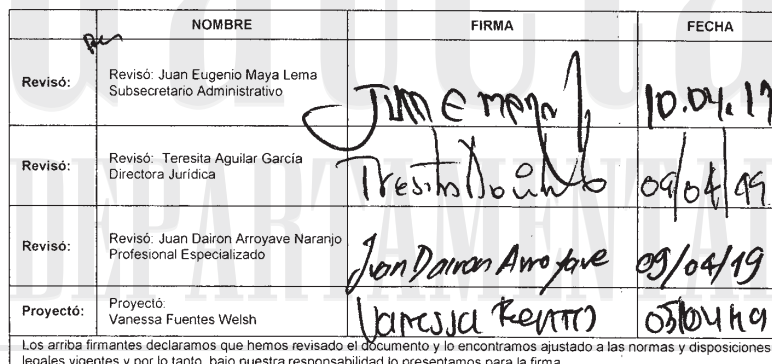 NOMBRE FIRMA FECHA
Revisó: Revisó: Juan Eugenio Maya Lema
Subsecretario Administrativo
Juan E maya 10.04.19
Revisó: Revisó: Teresita Aguilar García
Directora Jurídica
09/04/19
Revisó: Revisó: Juan Dairon Arroyave Naranjo
Profesional Especializado
Juan Dairon Arroyave 09/04/19
Proyectó: Proyectó:
Vanessa Fuentes Welsh
Vanessa 05/04/19
Los arriba firmantes declaramos que hemos revisado el documento y lo encontramos ajustado a las normas y disposiciones
legales vigentes y por lo tanto, bajo nuestra responsabilidad lo presentamos para la firma.
DEPARTAMENTAL